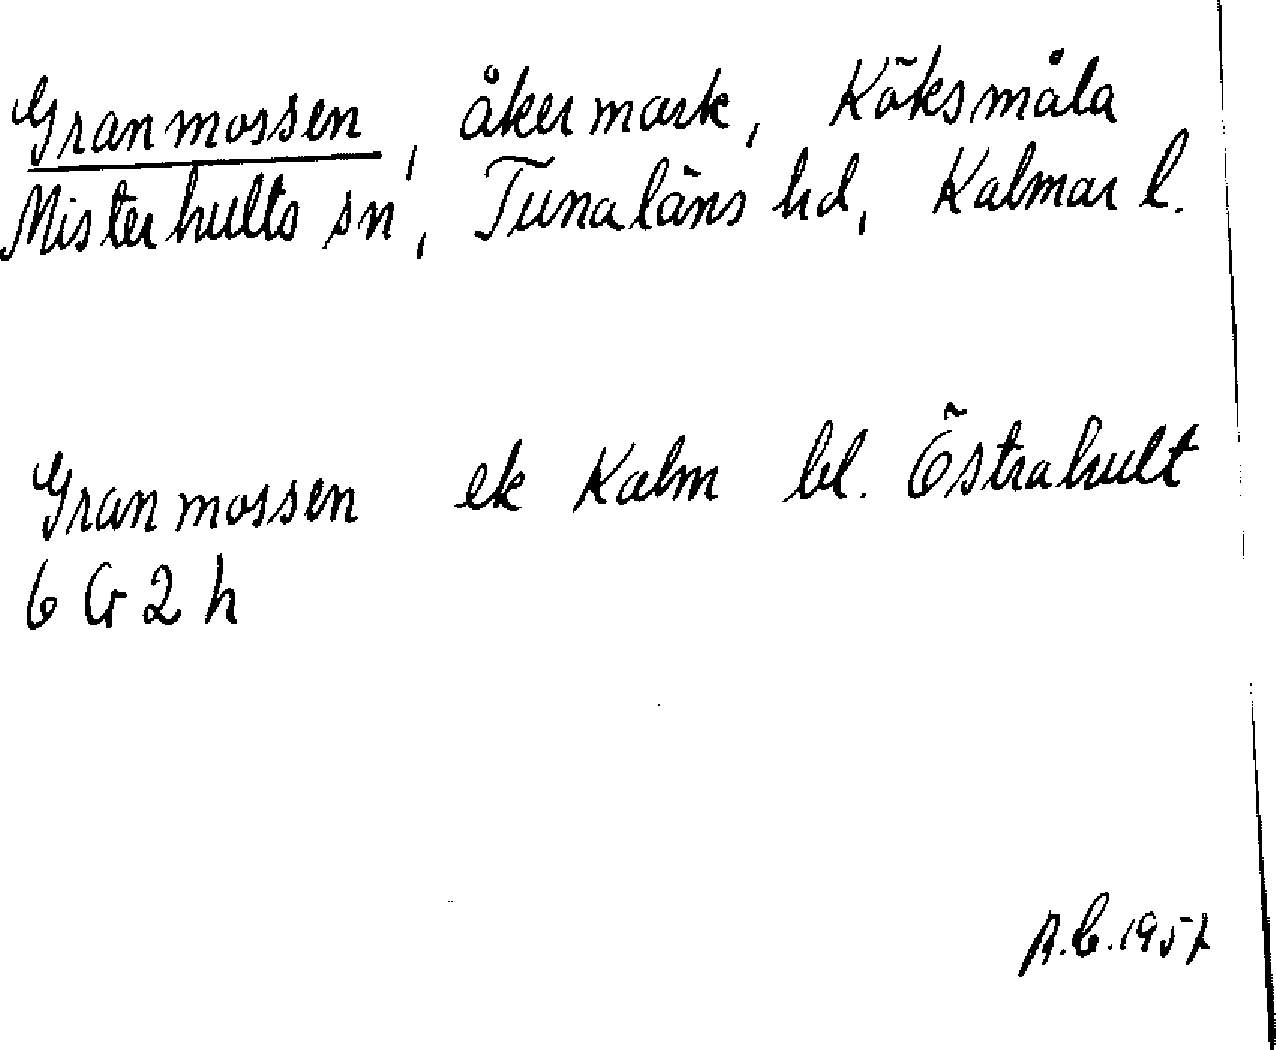 Granmossen, åkermark, Köksmåla
Misterhults sn, Tunaläns hd, Kalmar l.
Granmossen ek Kalm bl. Östrahult
6 G 2 h
A.C. 1957